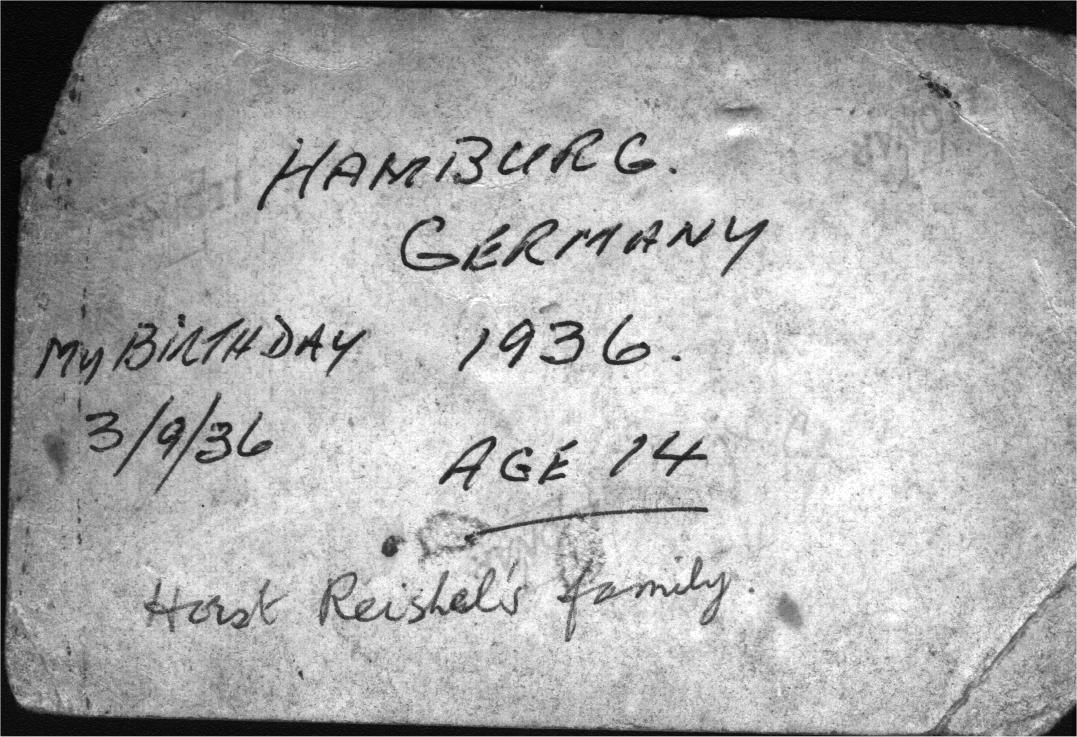 HAMBURG.
GERMANY
My BiRTHDAY 1936.
3/9/36
AGE 14
Horst Reishal's family.